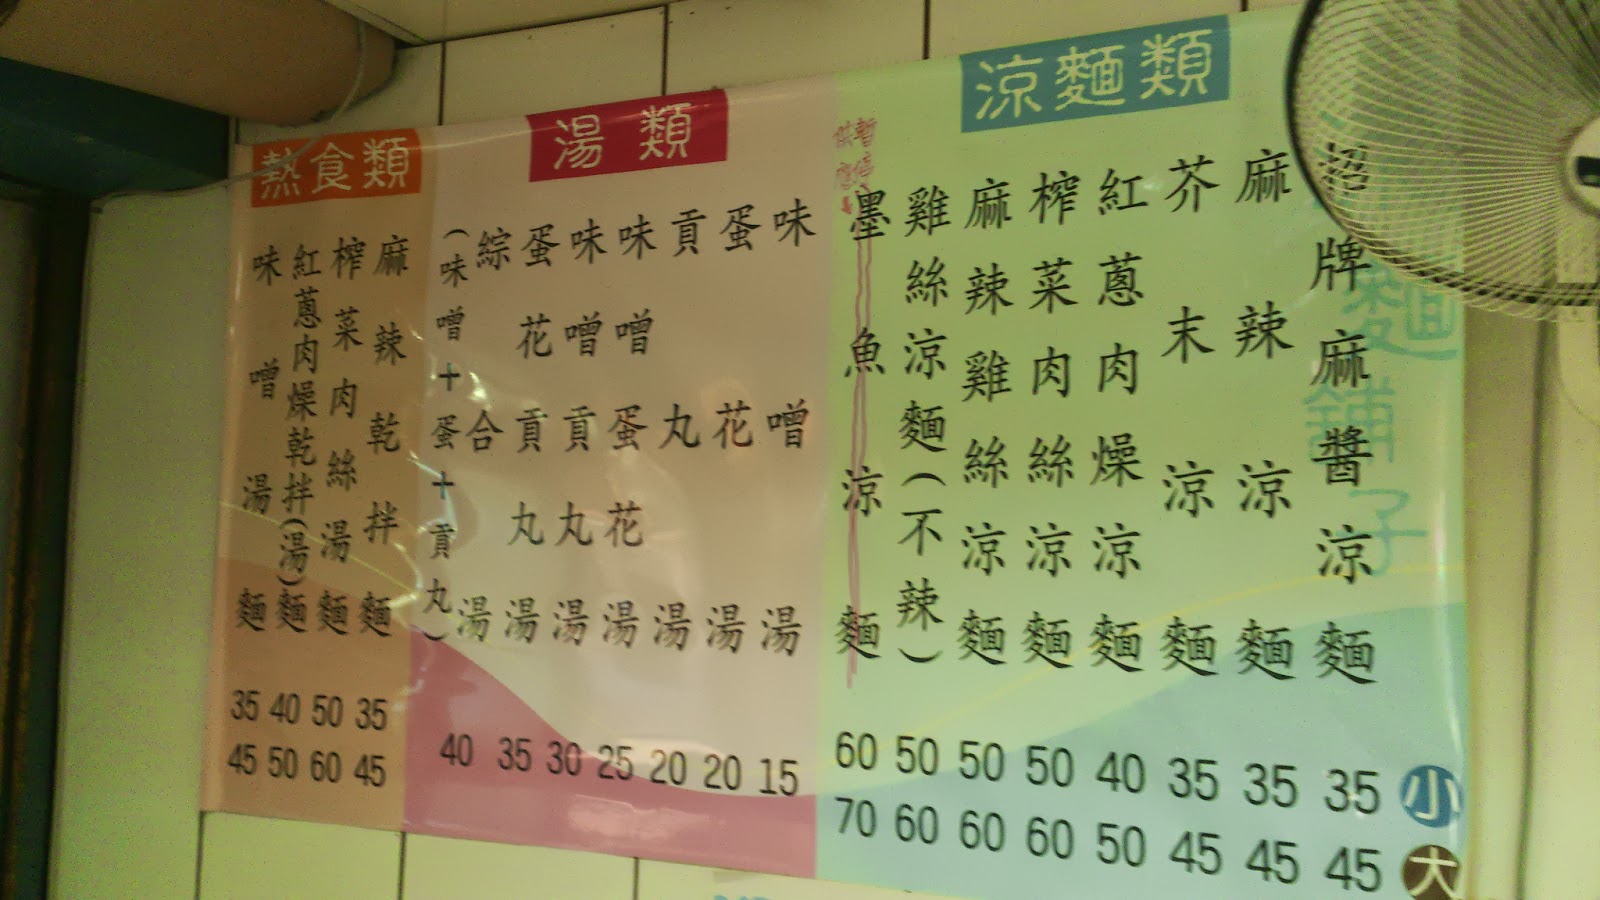 涼麵類
招牌麻醬涼麵 35 45
麻辣涼麵 35 45
芥末涼麵 35 45
紅蔥肉燥涼麵 40 50
榨菜肉絲涼麵 50 60
麻辣雞絲涼麵 50 60
雞絲涼麵(不辣) 50 60
墨魚涼麵 60 70
暫停
供應
小
大
麵舖子
湯類
味噌湯 15
蛋花湯 20
貢丸湯 20
味噌蛋花湯 25
味噌貢丸湯 30
蛋花貢丸湯 35
綜合湯 40
(味噌+蛋+貢丸)
熱食類
麻辣乾拌麵 35 45
榨菜肉絲湯麵 50 60
紅蔥肉燥乾拌(湯)麵 40 50
味噌湯麵 35 45